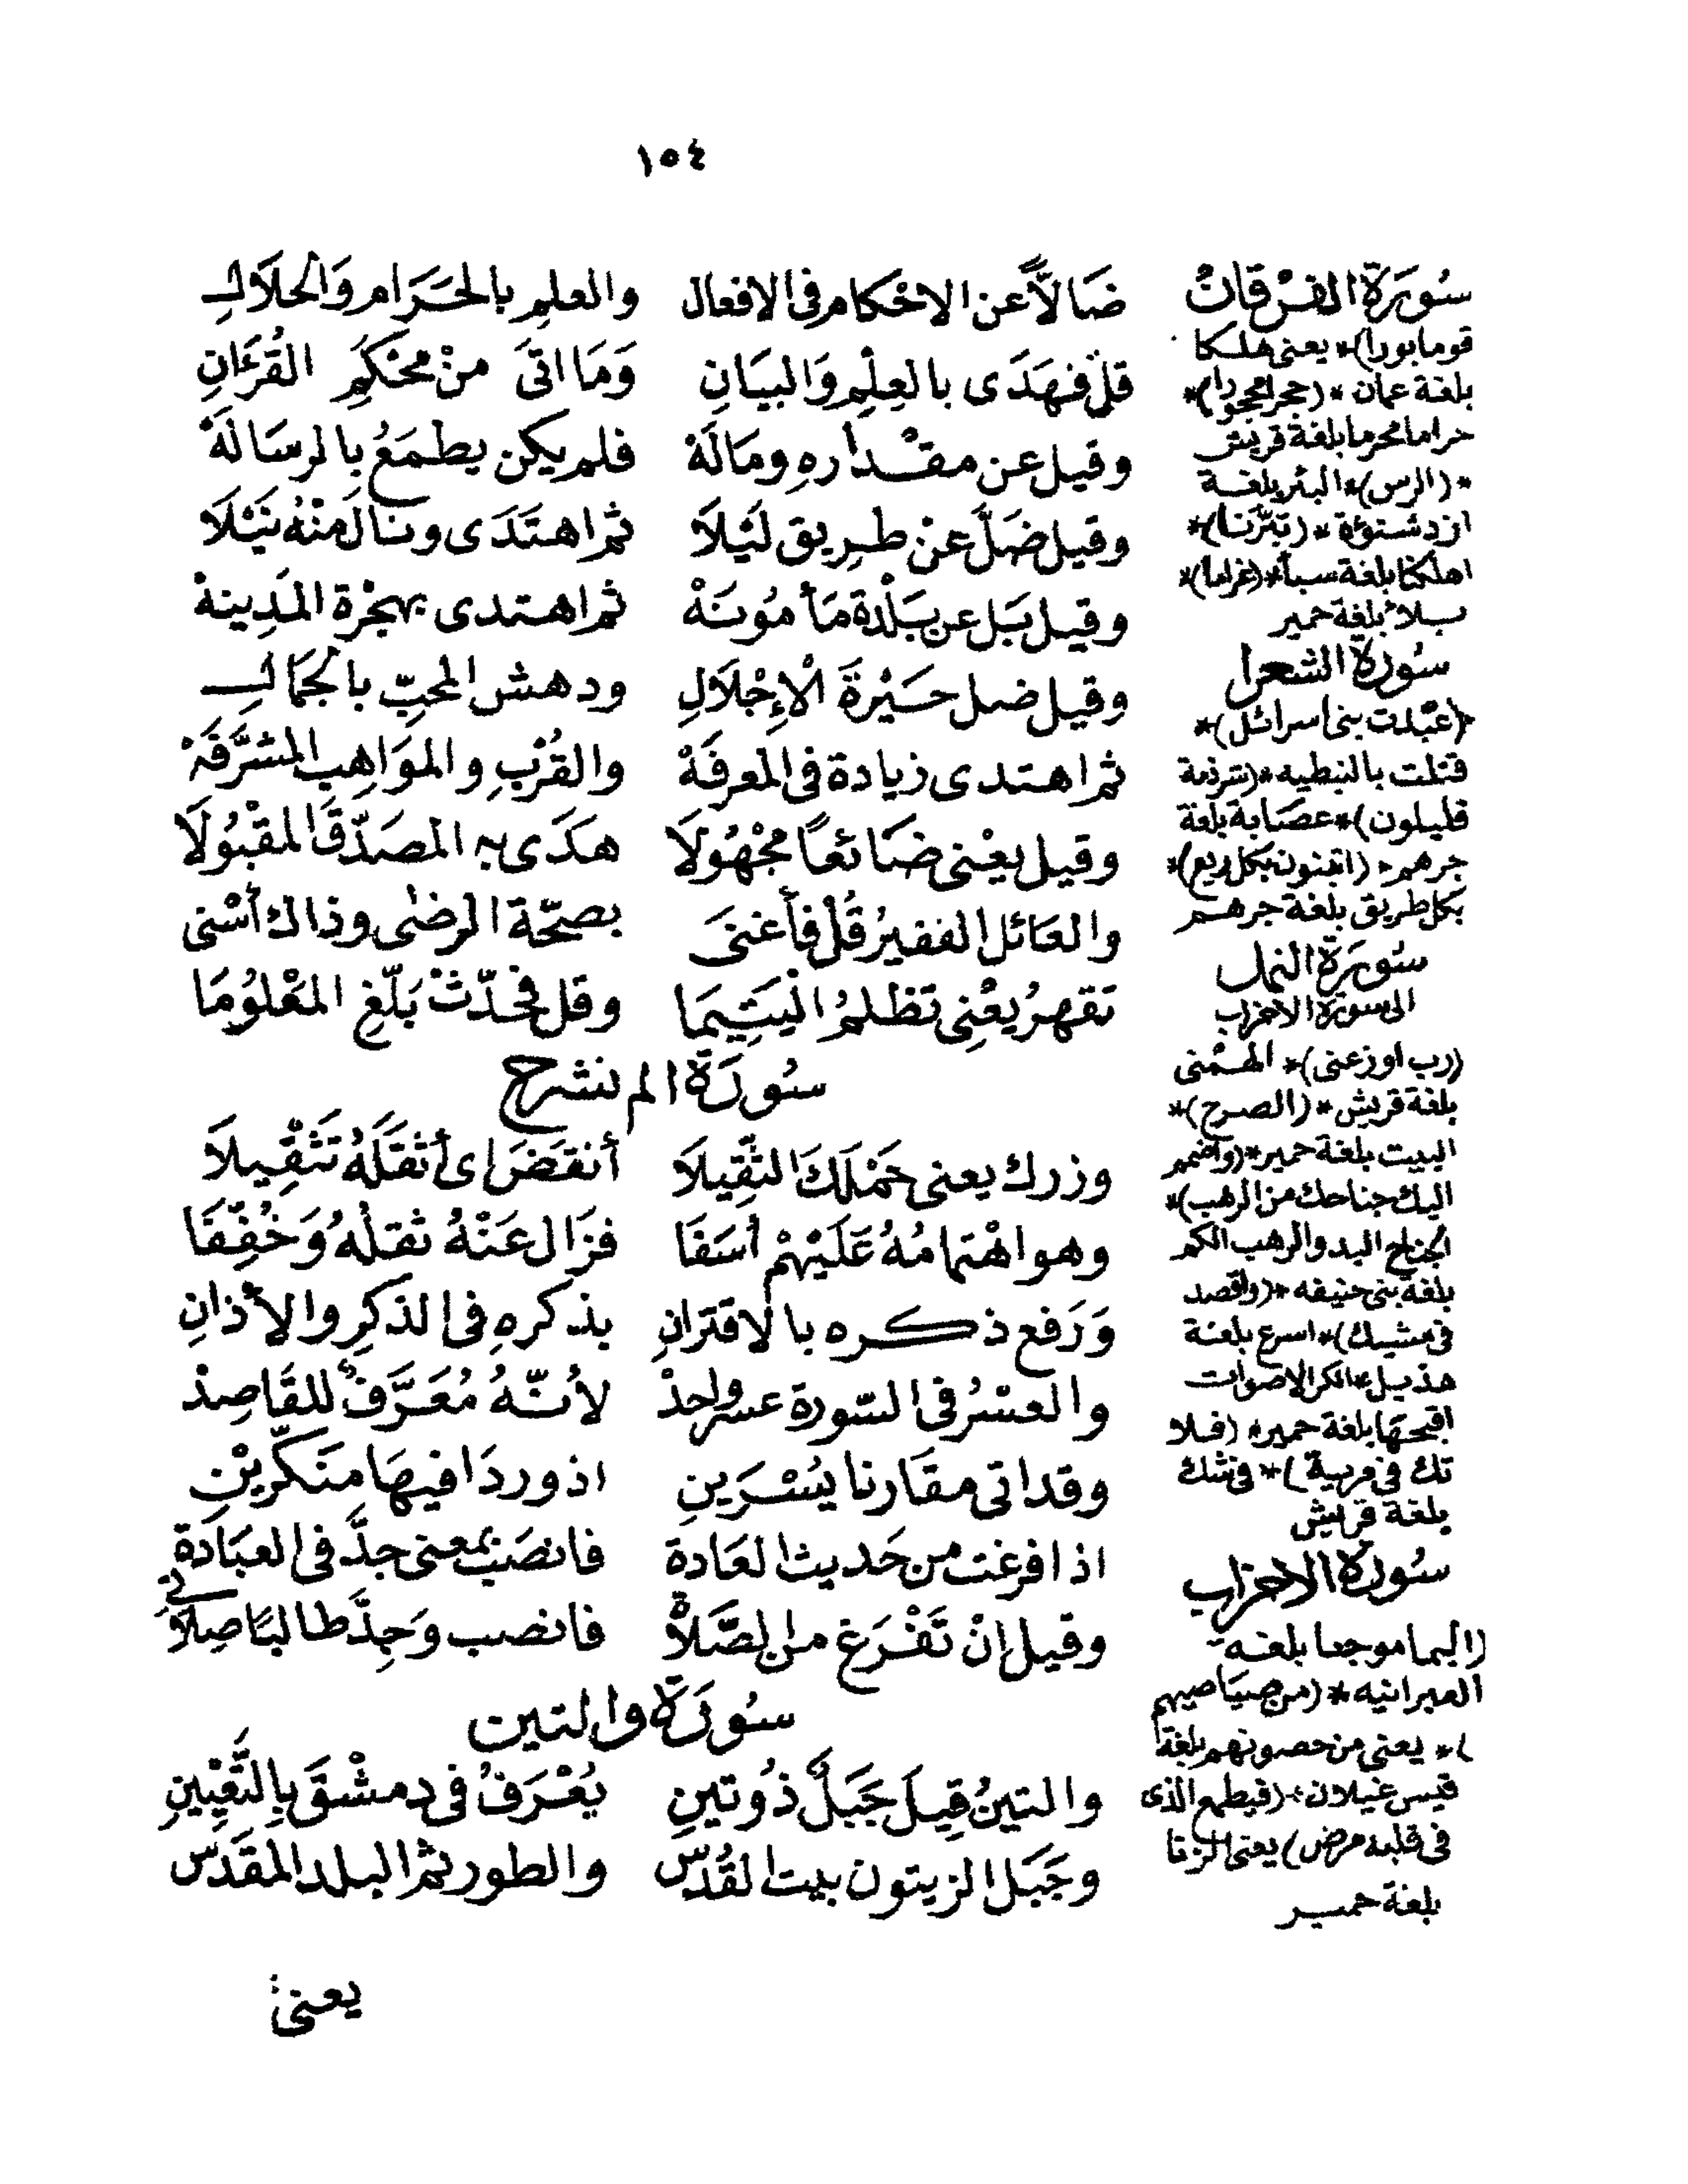 ١٥٤
ضَالًّا عن الاحْكام فى الافعال والعلمِ بالحَرَام وَالحلَال
قل فهَدَى بالعِلمِ وَالبيَانِ وَمَا اتىَ منْ محْكَمِ القُرءَانِ
وقيل عن مقْدارهِ ومَالَهْ فلم يكن يطمَعُ بالرسَالَهْ
وقيل ضَلَّ عنْ طرِيق لَيْلاَ ثم اهتَدَى ونال منْهُ نَيْلَا
وقيل بَل عن بَلْدة مَأمُونَهْ ثم اهتدى بهجْرة المَدِينهْ
وقيل ضل حَيْرةَ الْإِجْلَالِ ودهش المحبِّ بالجَمَال
ثم اهتدى زيادة فى المعرفَهْ والقُرْبِ والموَاهِب المشَرَّفَهْ
وقيل يعْنى ضَائعاً مجْهُولَا هَدَى به المصَدّقَ المقْبُولَا
والعَائل الفقيرُ قُلْ فأغنَى بصحّة الرضى وذاك أسْنى
تقهرُ يعْنِى تظلمُ اليَتِيمَا وقل فحَدّثْ بَلّغِ المَعْلوُمَا
سُورَة الم نشرح
وزرك يعنى حَمْلَكَ الثقِيلاَ أنقضَ اى أثقَلَهُ تَثْقِيلاَ
وهو اهْتمامُهُ عَلَيْهِمْ أسَفَا فزَال عَنْهُ ثقلُهُ وَخُفِّفَا
وَرَفع ذكره بالاقترَانِ بذكرهِ فى الذكرِ والأذانِ
والعسْرُ فى السّورة عسر واحِدْ لأنّهُ مُعَرَّفٌ للقَاصِدْ
وقد اتى مقَارنا يسْرَينِ اذ وردَا فيهَا منَكَّرَيْنِ
اذا فرغت من حَديث العَادة فانصَبْ بمعنى جدَّ فى العبَادة
وقيل انْ تَفْرَغ من الصَّلاَةْ فانصب وَجِدَّ طالبًا صِلاَتى
سُورَة والتين
والتينُ قِيلَ جَبَلٌ ذُو تينِ يُعْرَفُ فى دمشْقَ بِالتَّعْيِينِ
وجَبَل الزيتون بيت القُدْسِ والطور ثم البلد المقَدّسِ
يعنى
سُورَة الفرْقان
قوما بورا)* يعنى هلكا
بلغة عمان *(حجرا محجورا)*
حراما محرما بلغة قريش
*(الرس)* البئر بلغة
ازد شنوءة *(تبّرنا)*
اهلكنا بلغة سبأ *(غراما)*
بلاء بلغة حمير
سُورة الشعرا
(عبّدت بنى اسرائل)*
قتلت بالنبطيه *(شرذمة
قليلون)* عصابة بلغة
جرهم *(اتبنون بكل ريع)*
بكل طريق بلغة جرهم
سُورَة النمل
الى سورة الاحزاب
(رب اوزعنى)* الهمْنى
بلغة قريش *(الصرح)*
البيت بلغة حمير *(واضمم
اليك جناحك من الرهب)*
الجناح اليد والرهب الكم
بلغة بنى حنيفه *(واقصد
فى مشيك)* اسرع بلغة
هذيل *انكر الاصوات
اقبحها بلغة حمير *(فلا
تك فى مرية)* فى شك
بلغة قريش
سُورة الاحزاب
(اليما موجعا بلغة
العبرانيه *(من صياصيهم
)* يعنى من حصونهم بلغة
قيس غيلان *(فيطمع الذى
فى قلبه مرض) يعنى الزنا
بلغة حمير